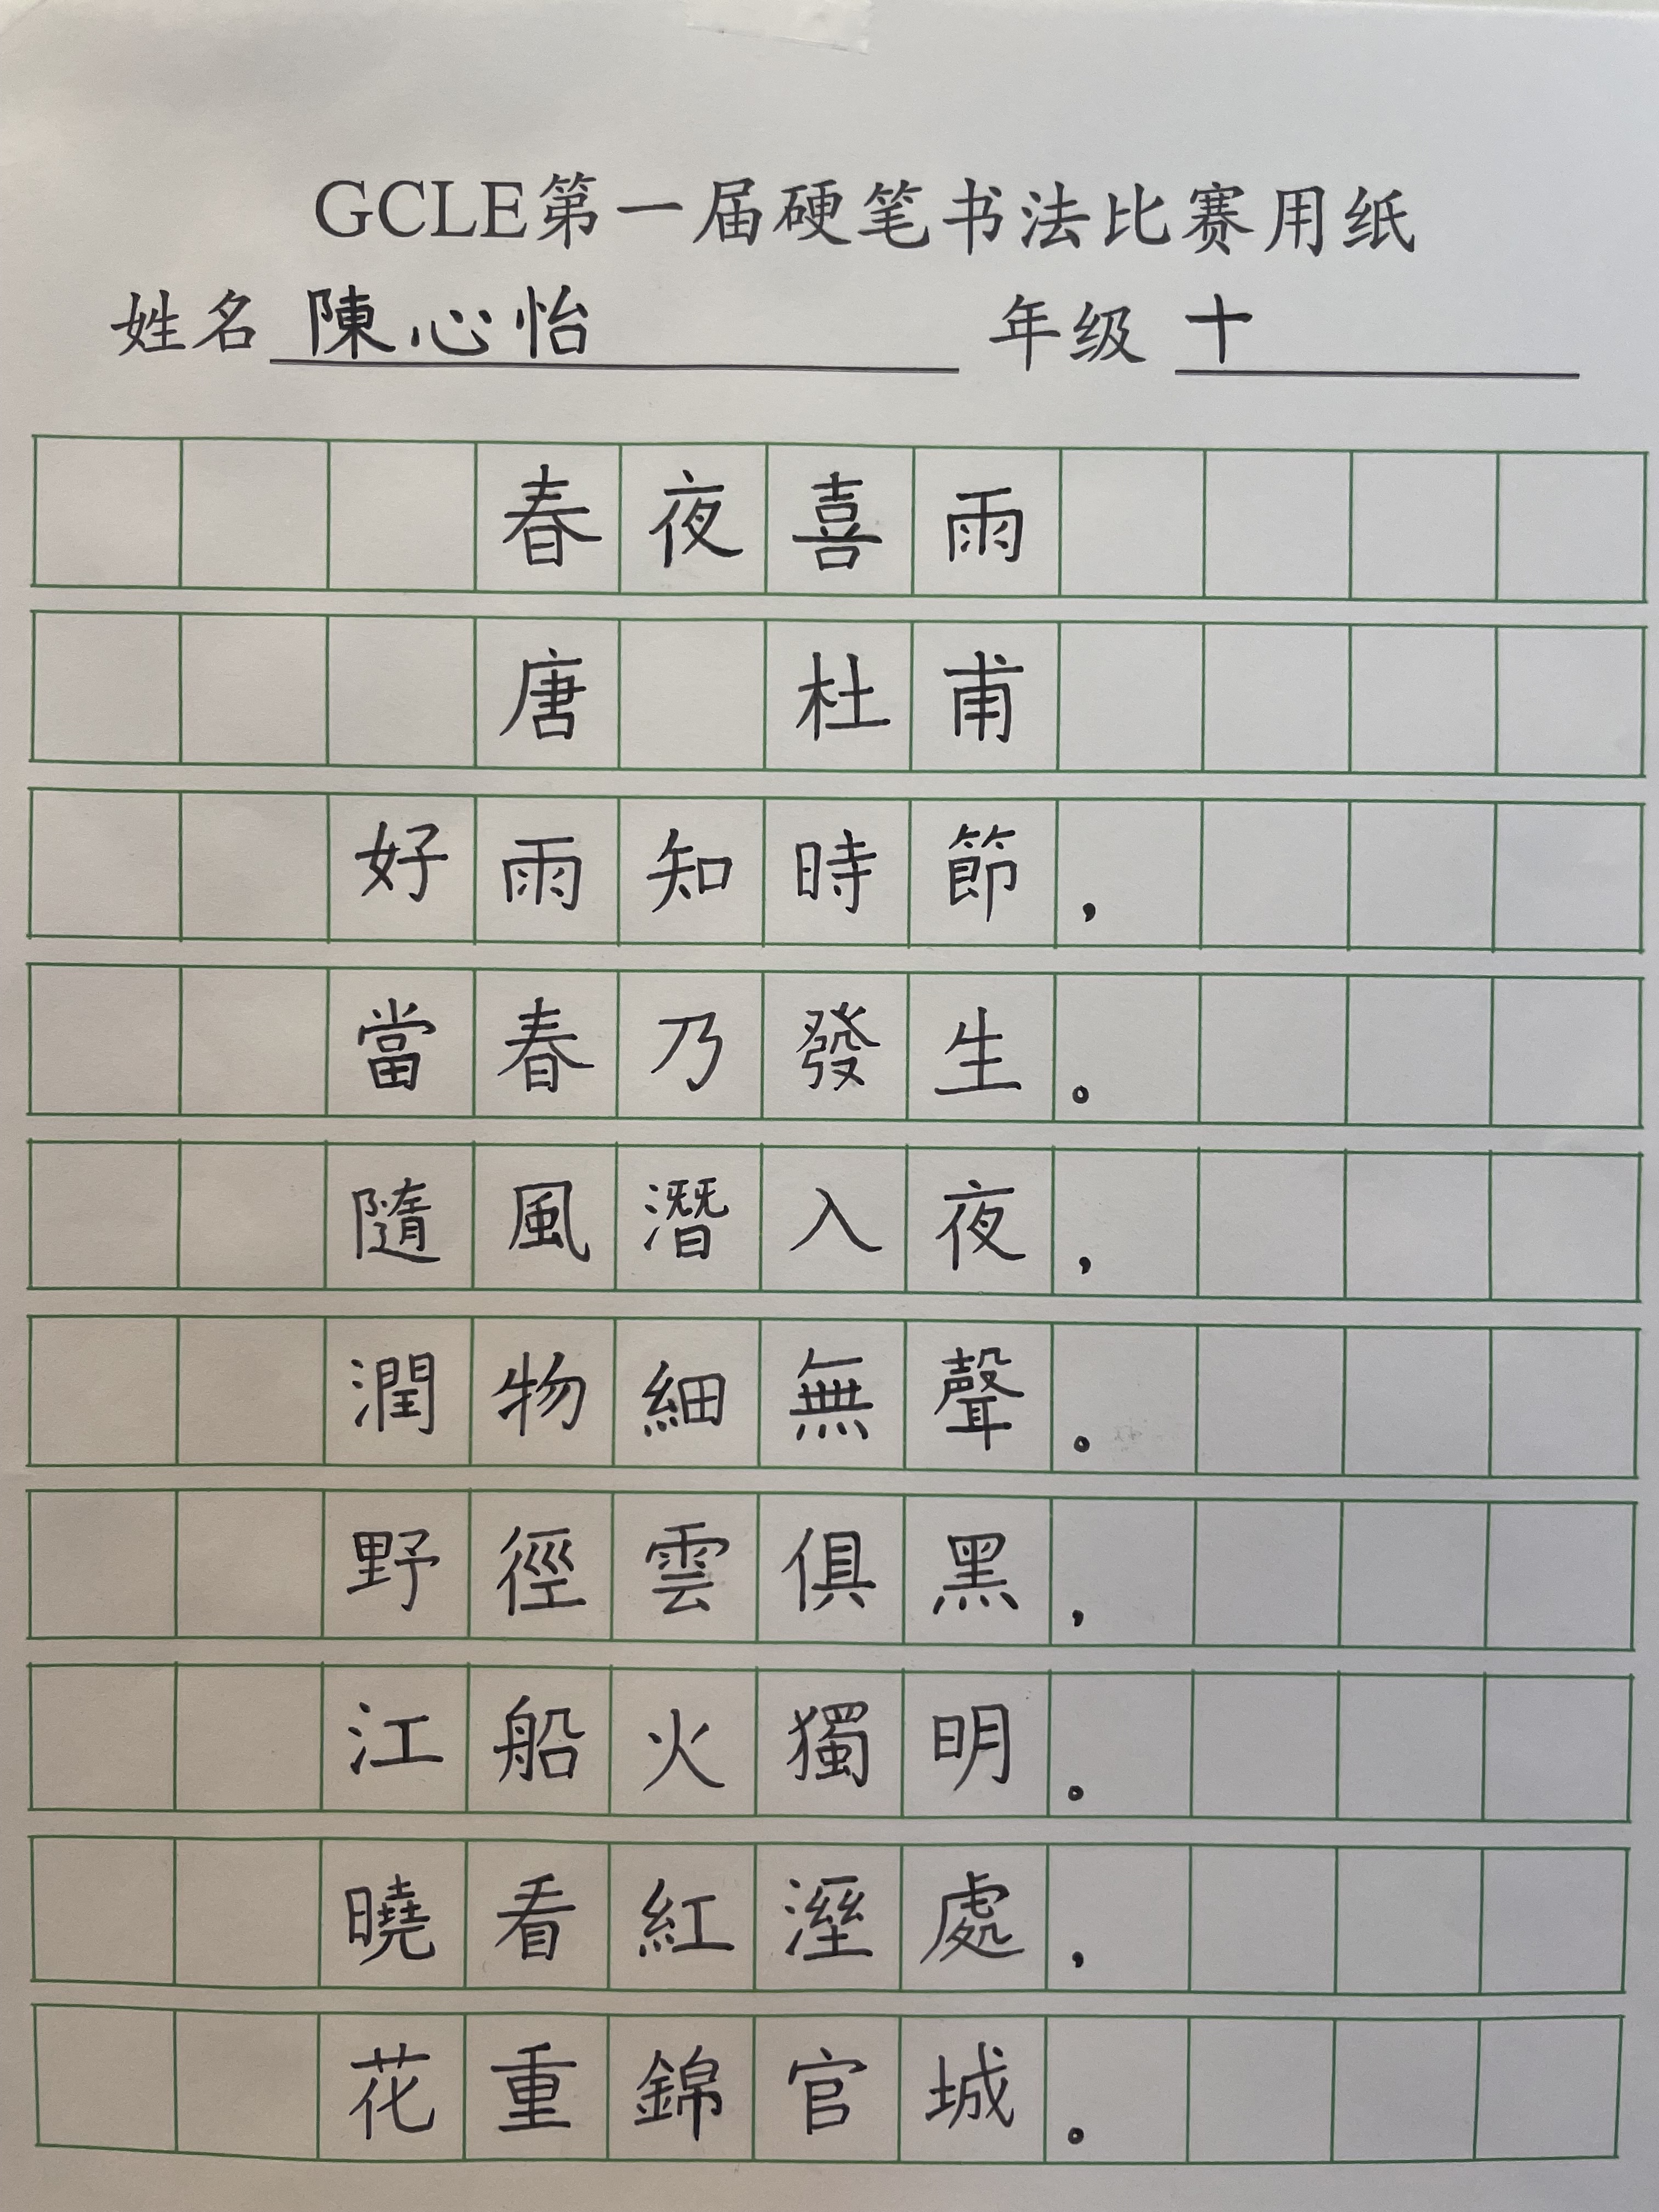 GCLE第一届硬笔书法比赛用纸
姓名 陳心怡 年级 十
春夜喜雨
唐 杜甫
好雨知時節，
當春乃發生。
隨風潛入夜，
潤物細無聲。
野徑雲俱黑，
江船火獨明。
曉看紅溼處，
花重錦官城。